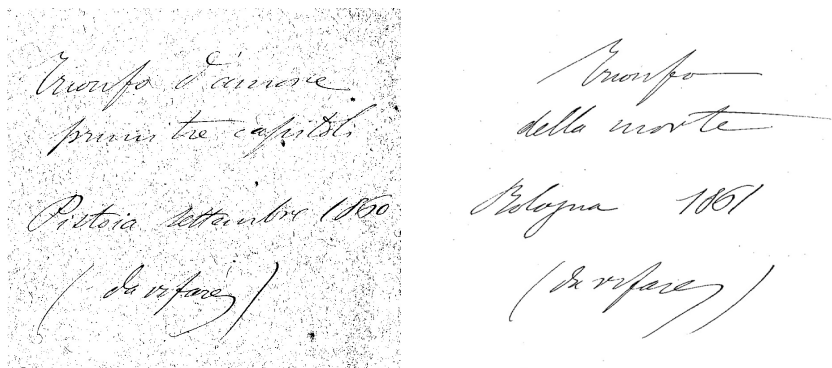 Trionfo d'amore
primi tre capitoli
Pistoia settembre 1860
(da rifare)
Trionfo
della morte
Bologna 1861
(da rifare)